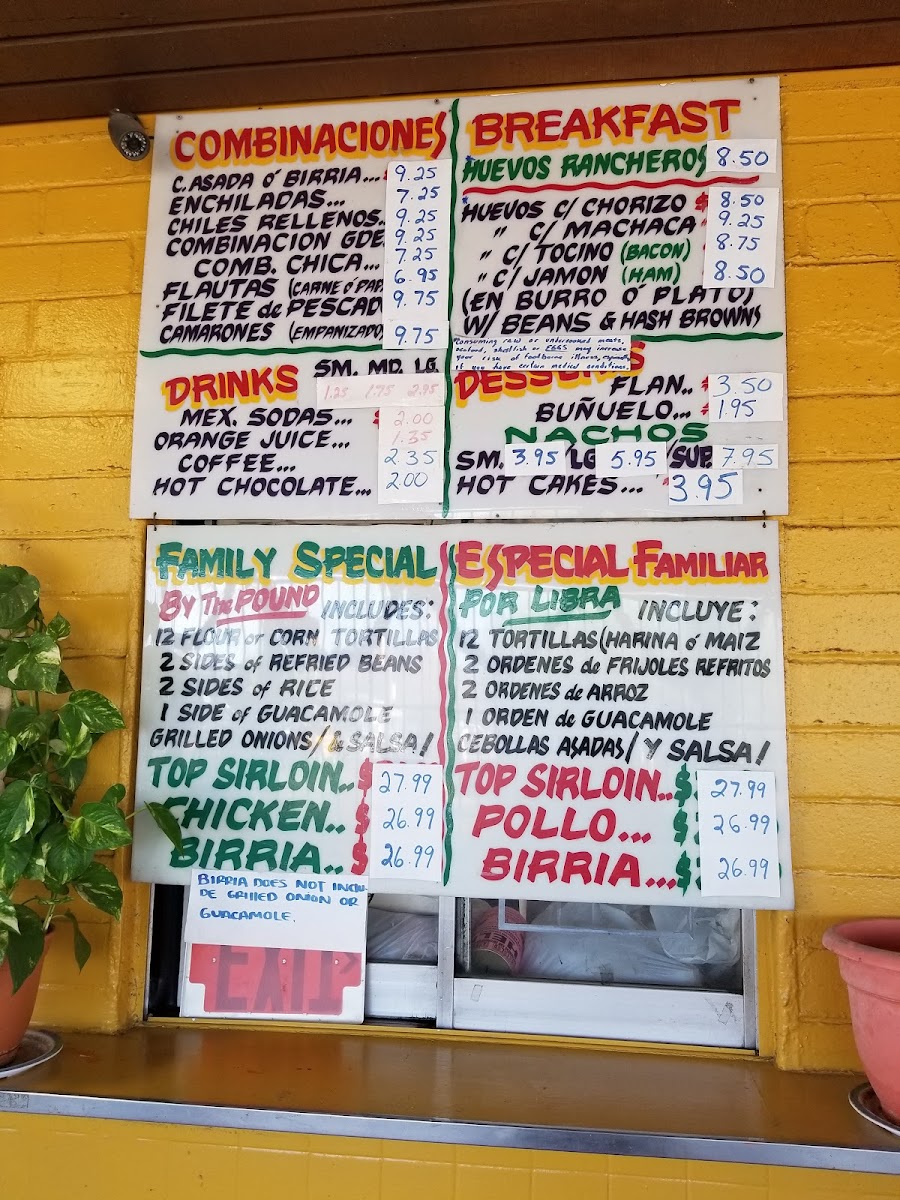 COMBINACIONES
C. ASADA Ó BIRRIA... 9.25
ENCHILADAS... 7.25
CHILES RELLENOS.. 9.25
COMBINACION GDE. 9.25
COMB. CHICA... 7.25
FLAUTAS (CARNE Ó PAP 6.95
FILETE de PESCADO 9.75
CAMARONES (EMPANIZADO) 9.75
BREAKFAST
HUEVOS RANCHEROS 8.50
HUEVOS C/ CHORIZO $ 8.50
" C/ MACHACA 9.25
" C/ TOCINO (BACON) 8.75
" C/ JAMON (HAM) 8.50
(EN BURRO Ó PLATO)
W/ BEANS & HASH BROWNS
Consuming raw or undercooked meats,
seafood, shellfish or EGGS may increase
your risk of foodborne illness, especially
if you have certain medical conditions.
DRINKS SM. MD. LG.
1.25 1.75 2.95
MEX. SODAS... 2.00
ORANGE JUICE... 1.35
COFFEE... 2.35
HOT CHOCOLATE... 2.00
DESSERTS
FLAN.. 3.50
BUÑUELO... 1.95
NACHOS
SM. 3.95 /LG 5.95 /SUP. 7.95
HOT CAKES... 3.95
FAMILY SPECIAL
BY The POUND INCLUDES:
12 FLOUR or CORN TORTILLAS
2 SIDES of REFRIED BEANS
2 SIDES of RICE
1 SIDE of GUACAMOLE
GRILLED ONIONS/ & SALSA/
TOP SIRLOIN.. $ 27.99
CHICKEN.. $ 26.99
BIRRIA.. $ 26.99
ESPECIAL FAMILIAR
POR LIBRA INCLUYE:
12 TORTILLAS (HARINA ó MAIZ
2 ORDENES de FRIJOLES REFRITOS
2 ORDENES de ARROZ
1 ORDEN de GUACAMOLE
CEBOLLAS ASADAS/ Y SALSA/
TOP SIRLOIN.. $ 27.99
POLLO... $ 26.99
BIRRIA... $ 26.99
BIRRIA DOES NOT INCLU-
DE GRILLED ONION OR
GUACAMOLE.
EXIT